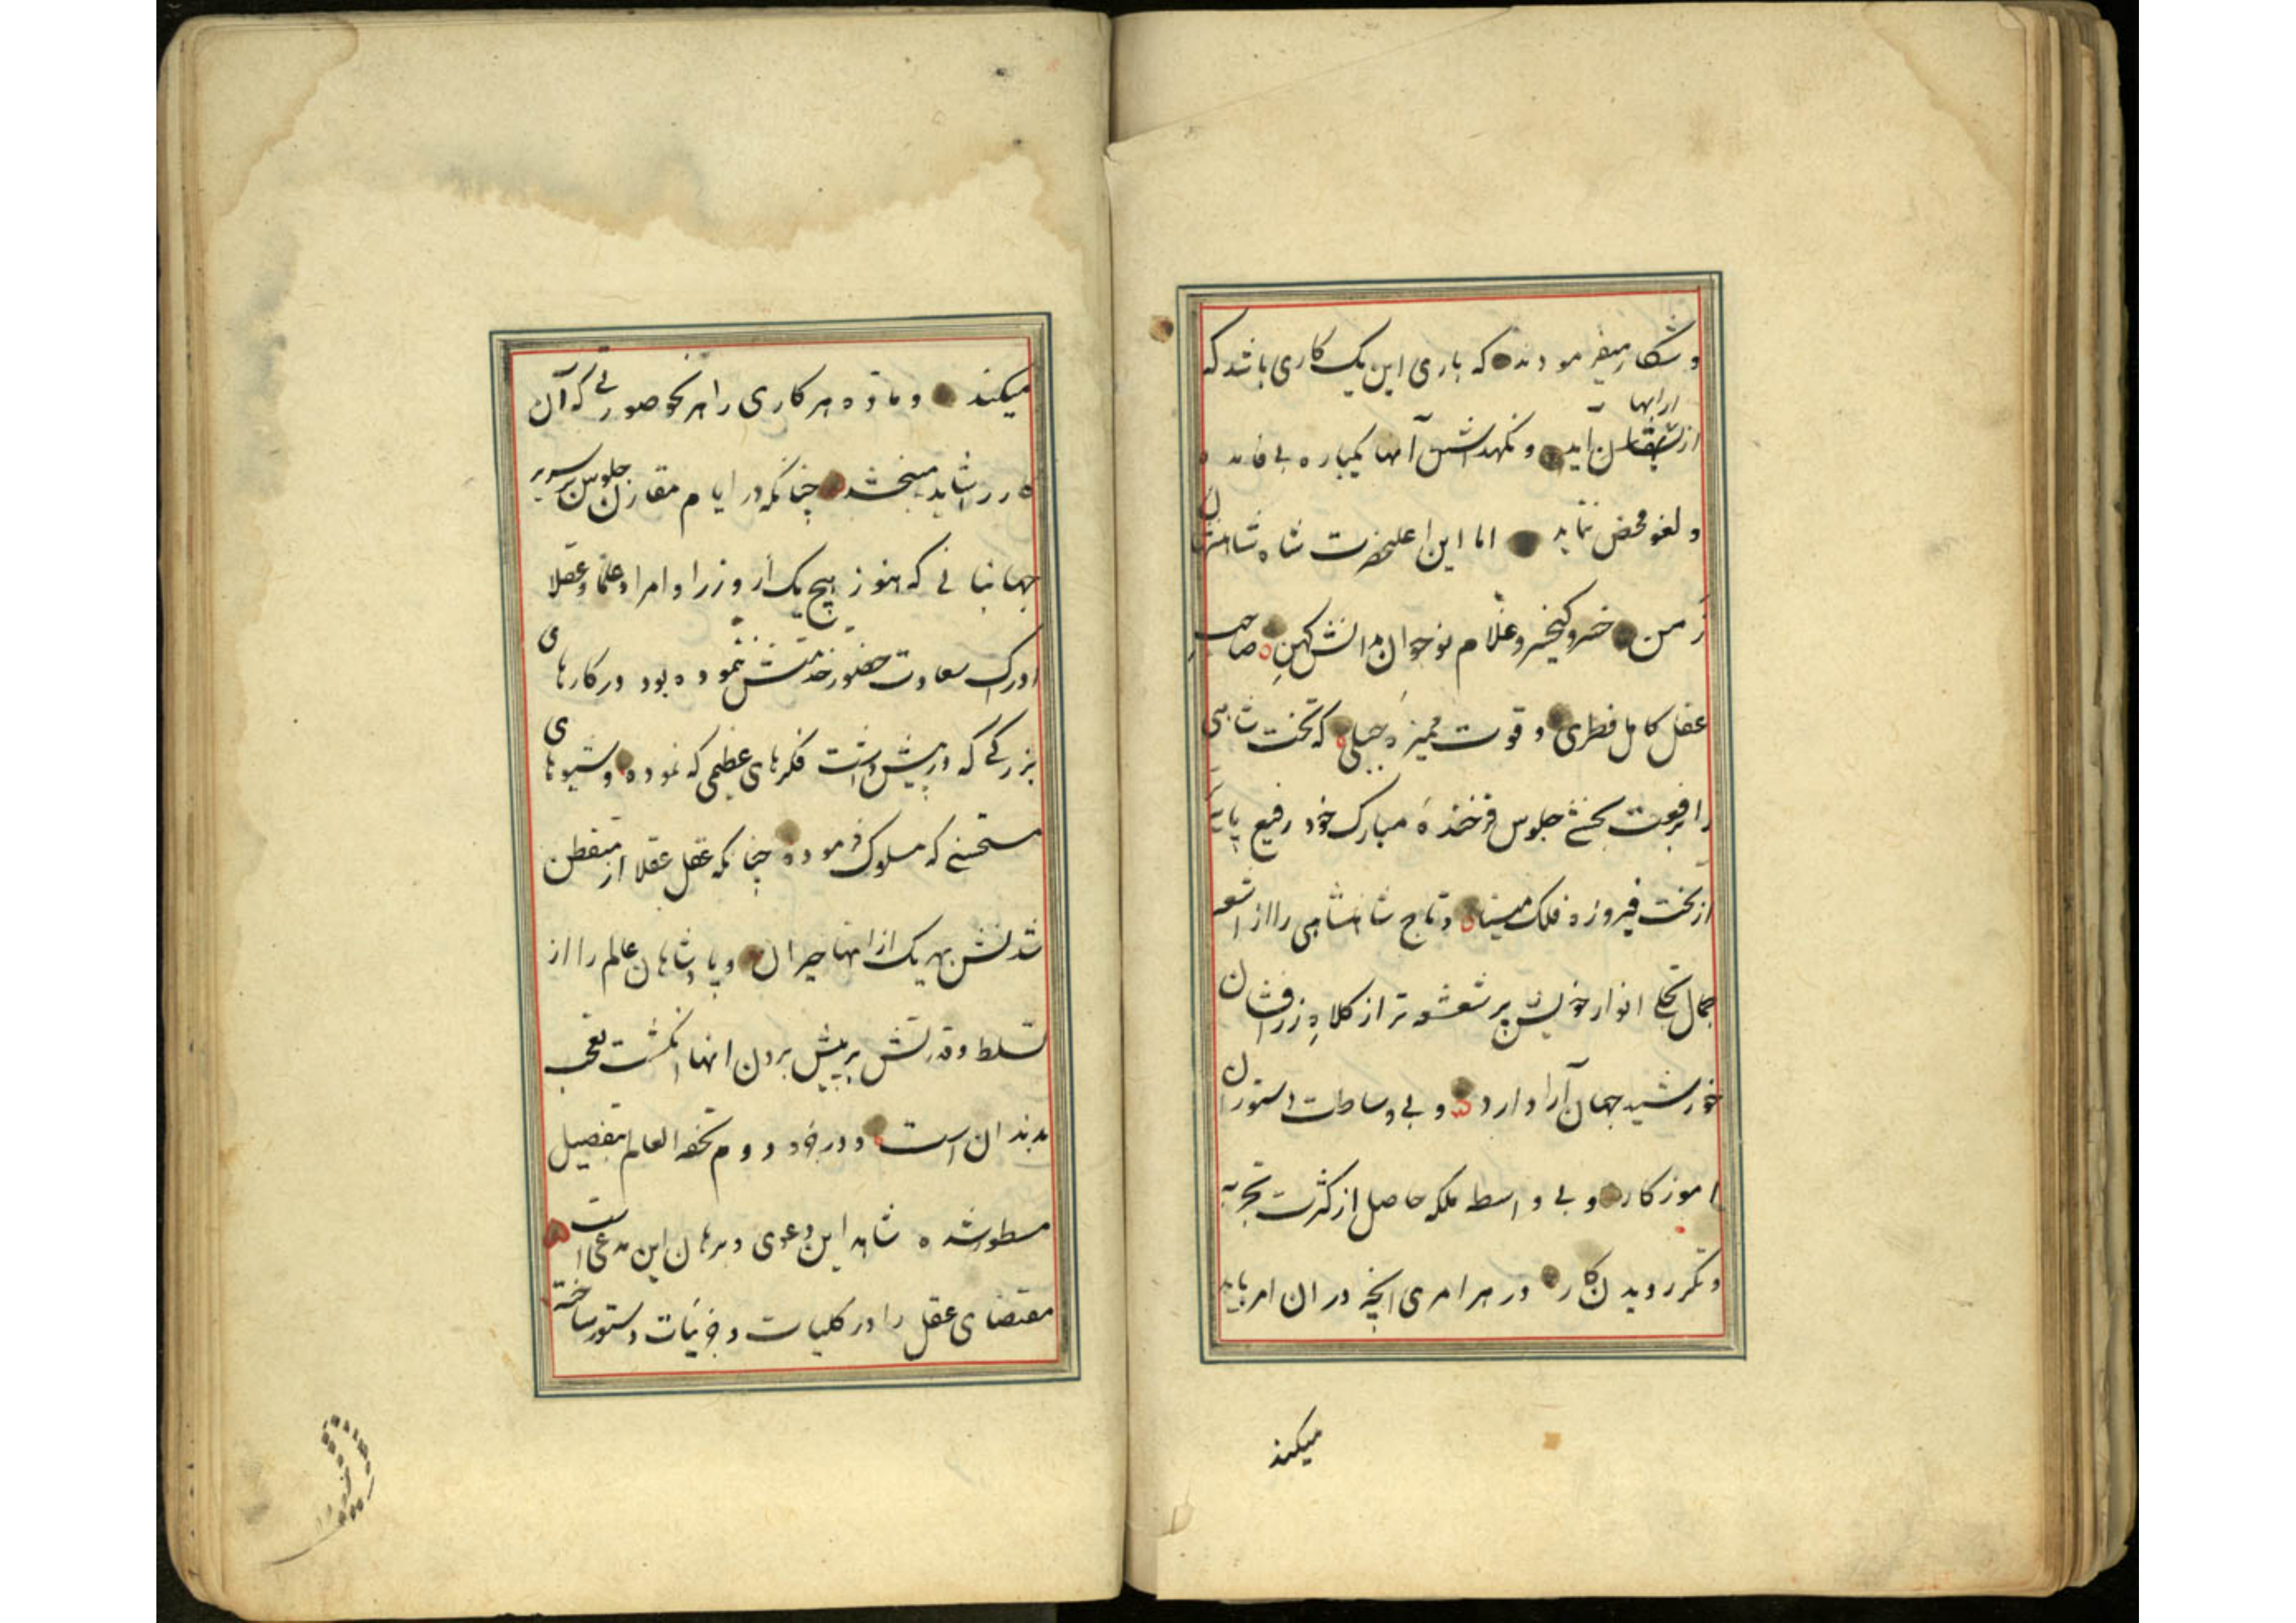 و شکار میفرمودند که باری این یک کاری باشد که
ارابها
از ایشان آید و نگهداشتن آنها یکباره بی فایده
و لغو محض ننماید اما این اعلیحضرت شاه شاهنشان
زمن خسرو کیخسرو غلام نوجوان دانش کهن صاحب
عقل کامل فطری و قوت ممیزه جبلی که تخت شاهی
را برفعت بخشی جلوس فرخنده مبارک خود رفیع پایه
از تخت فیروزه فلک مینا و تاج شاهنشاهی را از اشعه
جمال تجلی انوار خویش پر شعشعه تر از کلاه زرافشان
خورشید جهان آرا دارد و بی وساطت دستوران
اموز کار و بی واسطه ملکه حاصل از کثرت تجربه
و تکرر دیدن کار در هر امری آنچه در ان امر باید
میکند
میکند و ماده هر کاری را هر نحو صورتی که آن
را شاید میبخشد چنانکه در ایام مقارن جلوس سریر
جهانبانی که هنوز هیچ یک از وزرا و امرا و علما و عقلا
ادراک سعادت حضور خدمتش ننموده بود در کارهای
بزرگی که در پیش داشت فکرهای عظیمی که نموده و شیوهای
مستحسنی که سلوک فرموده چنانکه عقل عقلا از متفطن
شدنش بهر یک از انها حیران و پادشاهان عالم را از
تسلط و قدرتش بر پیش بردن انها انگشت تعجب
بدندان است و در جزو دوم تحفه العالم بتفصیل
مسطور شده شاهد این دعوی و برهان این مدعی است
مقتضای عقل را در کلیات و جزئیات دستور ساخته